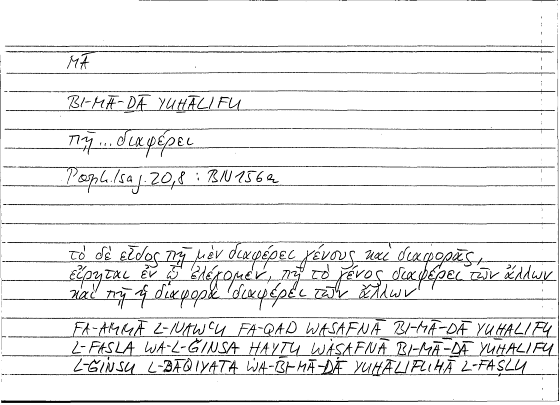 MĀ
BI-MĀ-ḎĀ YUḪĀLIFU
πῇ ... διαφέρει
Porph. Isag. 20,8 : BN 156a
τὸ δὲ εἶδος πῇ μὲν διαφέρει γένους καὶ διαφορᾶς,
εἴρηται ἐν ᾧ ἐλέγομεν, πῇ τὸ γένος διαφέρει τῶν ἄλλων
καὶ πῇ ἡ διαφορὰ διαφέρει τῶν ἄλλων
FA-AMMĀ L-NAWʿU FA-QAD WAṢAFNĀ BI-MĀ-ḎĀ YUḪĀLIFU
L-FAṢLA WA-L-ĞINSA ḤAYṮU WAṢAFNĀ BI-MĀ-ḎĀ YUḪĀLIFU
L-ĞINSU L-BĀQIYATA WA-BI-MĀ-ḎĀ YUḪĀLIFUHĀ L-FAṢLU